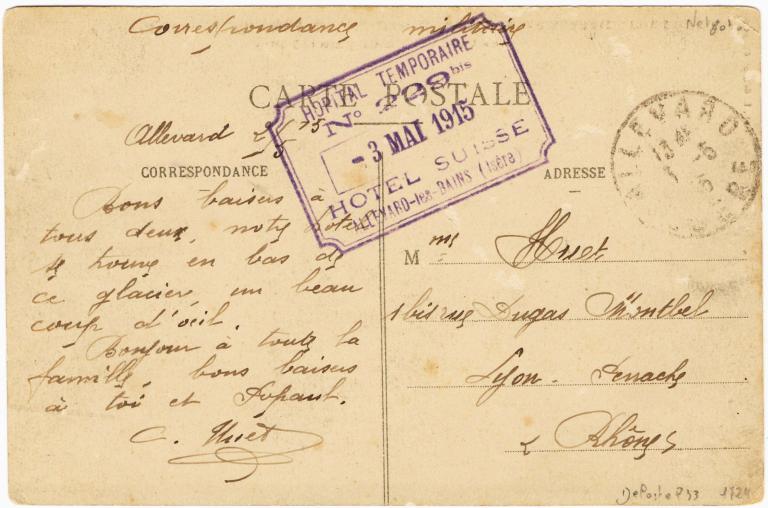 Correspondance militaire
CARTE POSTALE
HOPITAL TEMPORAIRE
N° 209 bis
- 3 MAI 1915
HOTEL SUISSE
ALLEVARD-les-BAINS (Isère)
ALLEVARD
Allevard 2/5 15
CORRESPONDANCE
Bons baisers à
tous deux, notre hotel
se trouve en bas de
ce glacier, un beau
coup d'œil.
Bonjour à toute la
famille, bons baisers
à toi et
C. Huet
ADRESSE
Mme Huet
1 bis rue Dugas Montbel
Lyon - Perrache
Rhône
1724